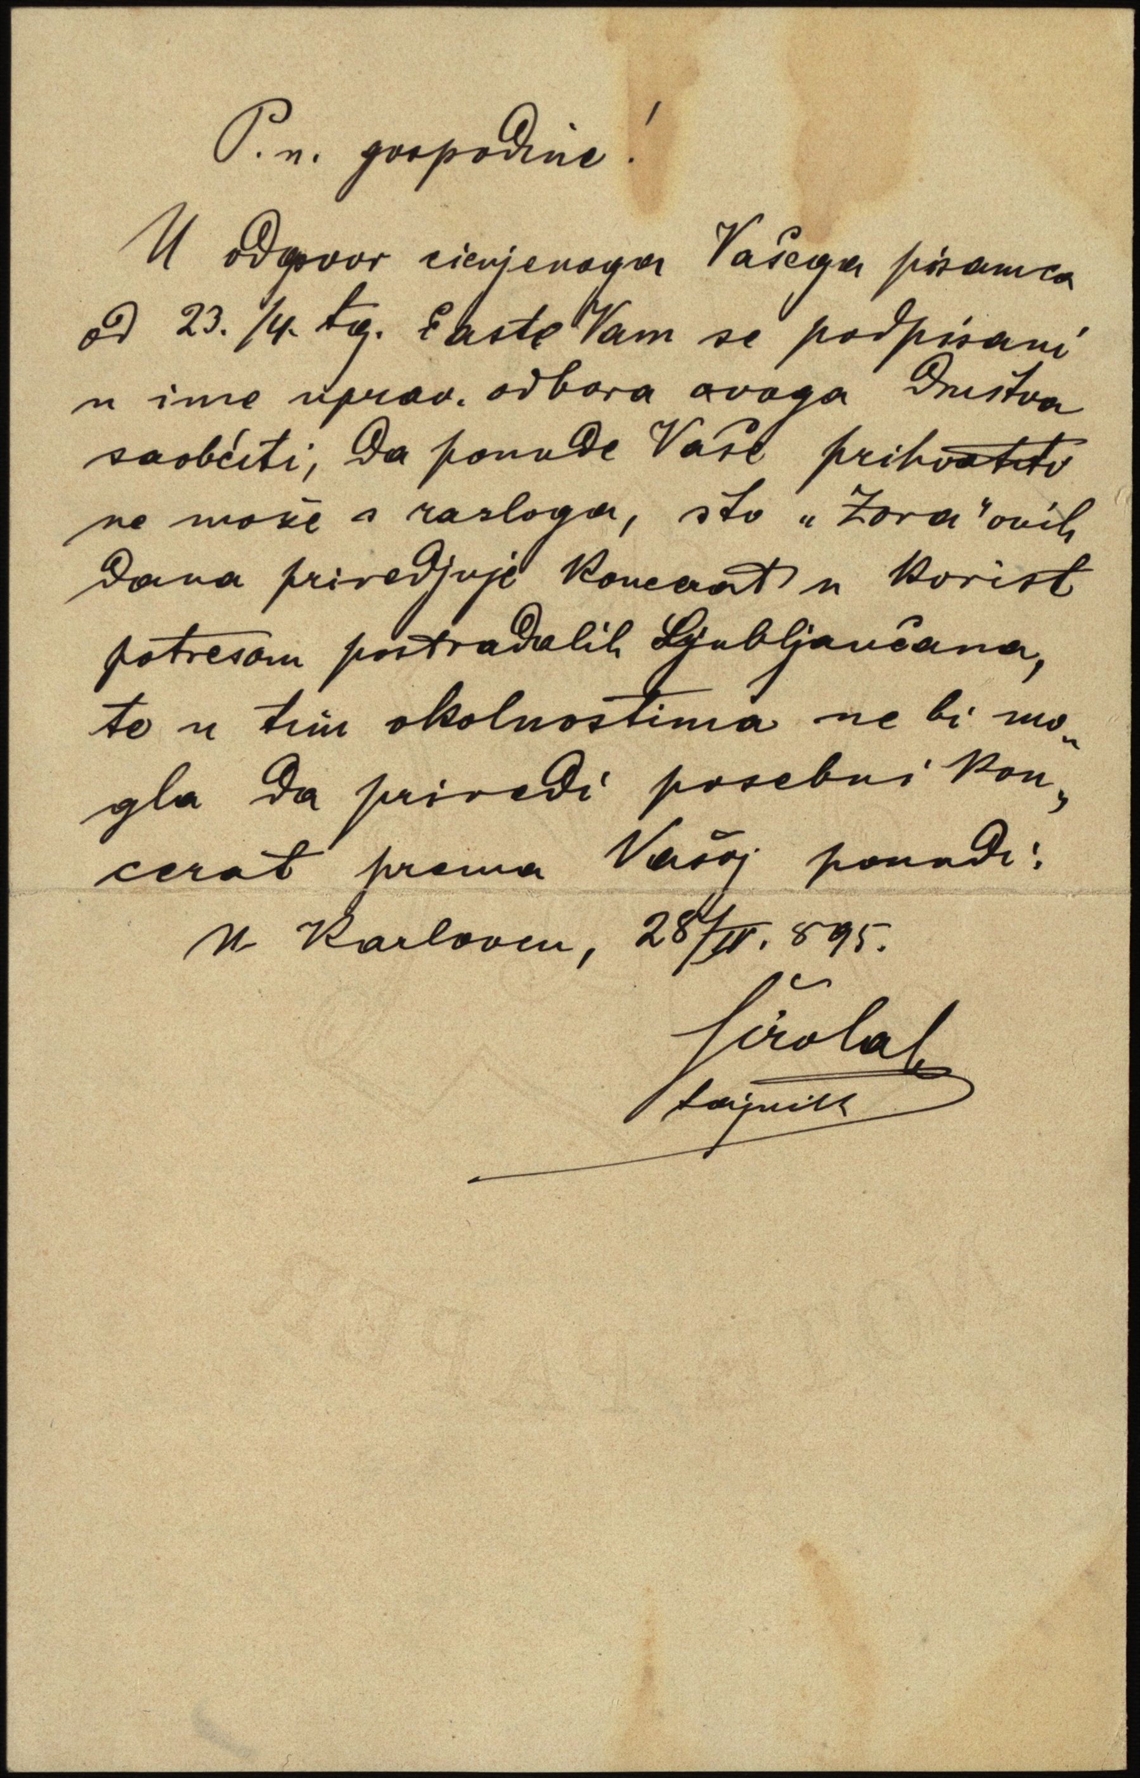 P. n. gospodine!
U odgovor cienjenoga Vašega pisamca
od 23./4. tg. časte Vam se podpisani
u ime uprav. odbora ovoga Društva
saobćiti, da ponude Vaše prihvatiti
ne može s razloga, što „Zora" ovih
dana priredjuje koncerat u korist
potresom postradalih Ljubljančana,
te u tim okolnostima ne bi mo„
gla da priredi posebni kon„
cerat prema Vašoj ponudi.
U Karlovcu, 28/IV. 895.
Širola
tajnik